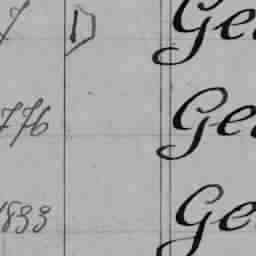 7 D Ge
776 Ge
1833 Ge